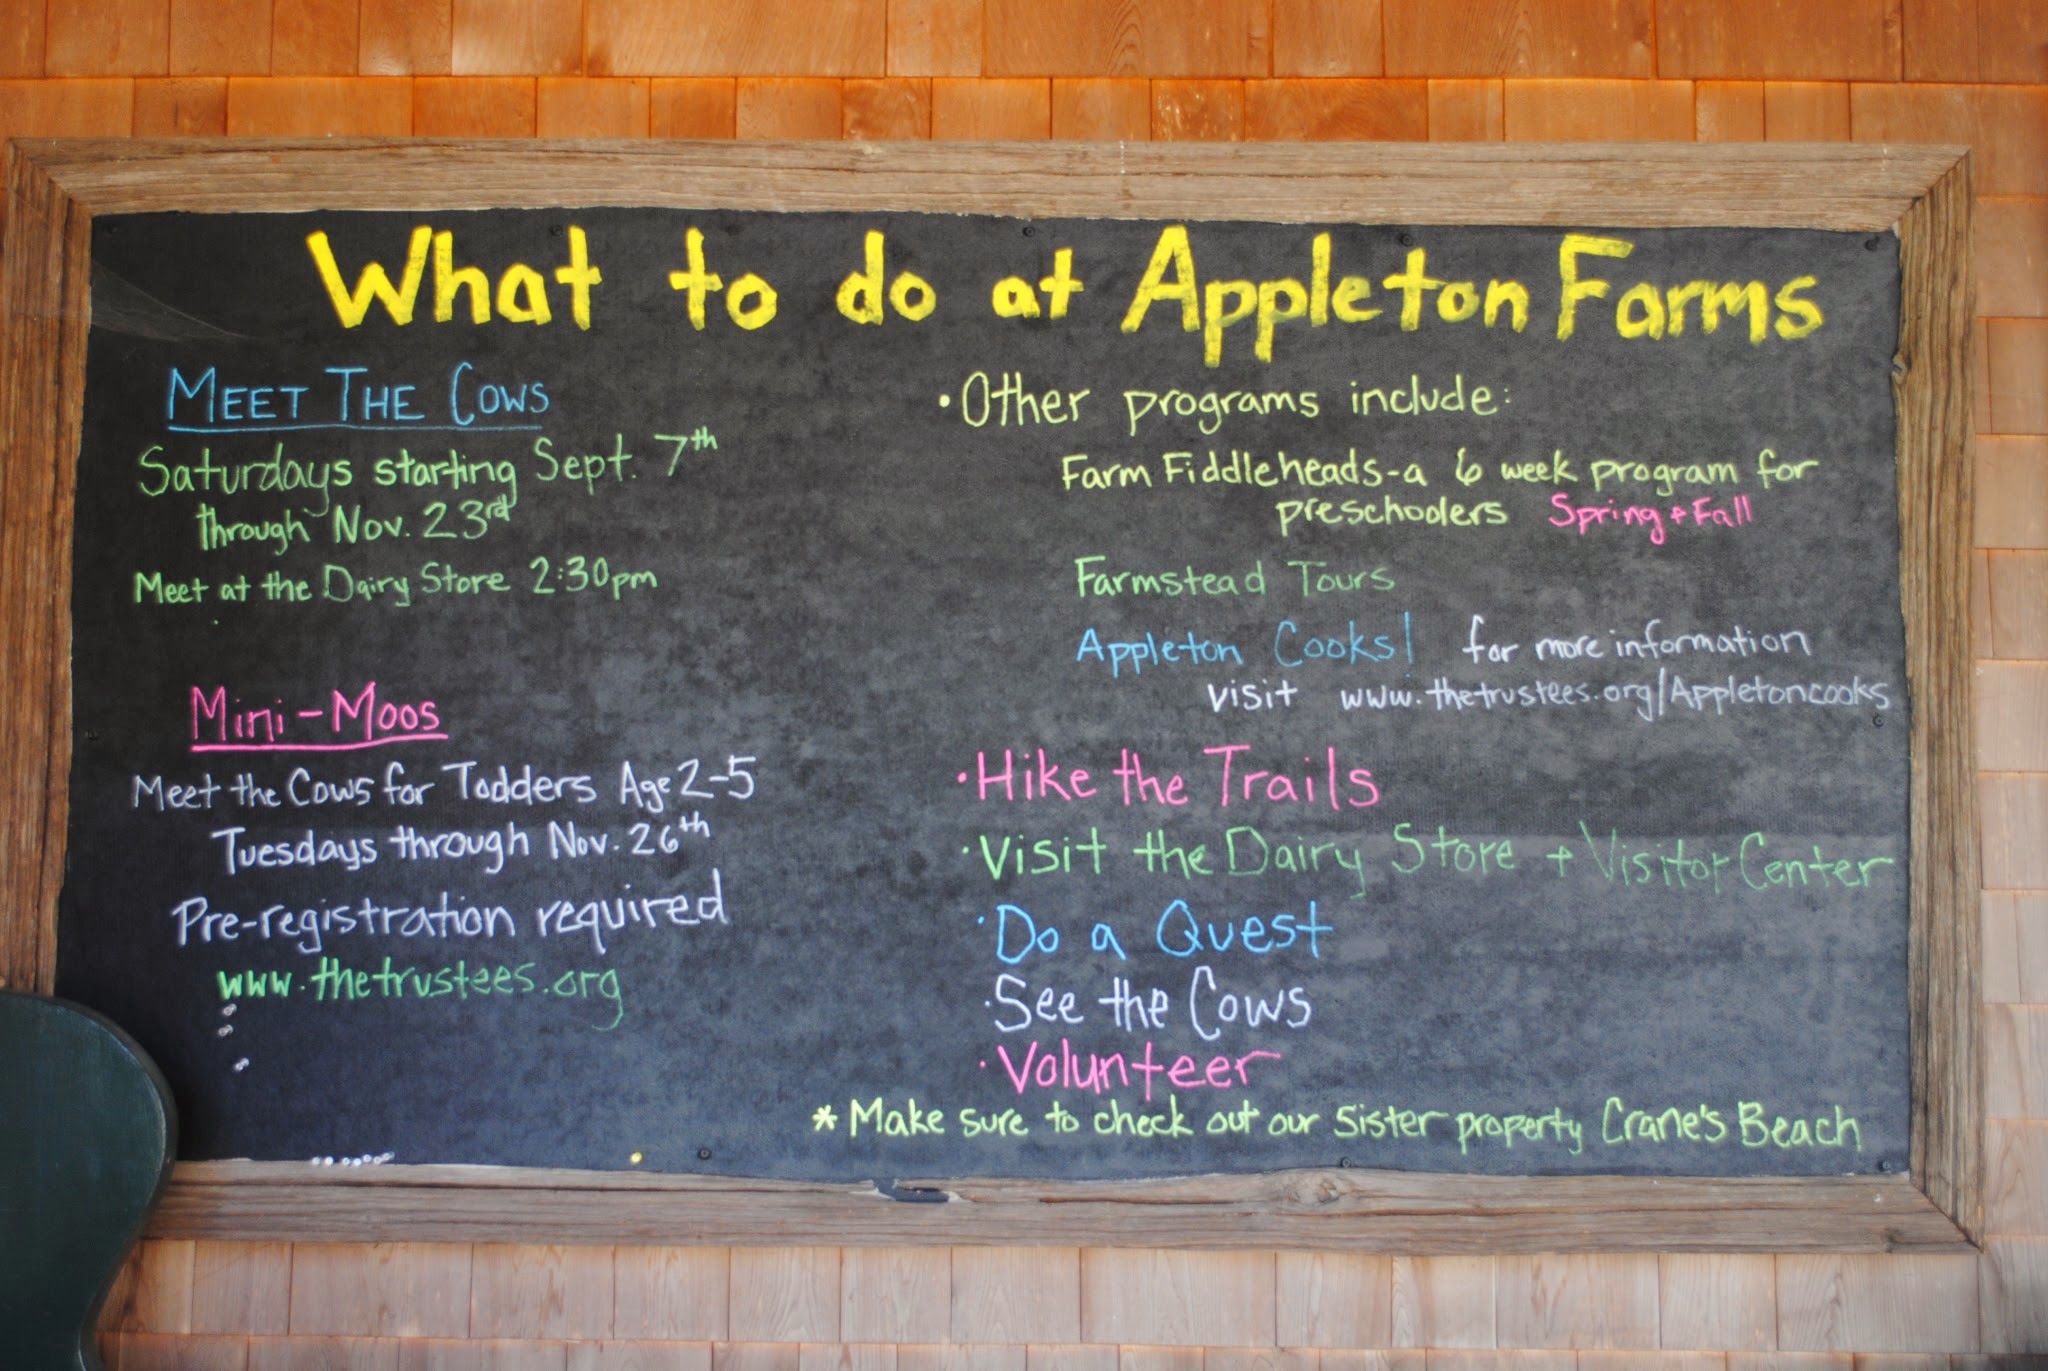 What to do at Appleton Farms
MEET THE COWS
Saturdays starting Sept. 7th
through Nov. 23rd
Meet at the Dairy Store 2:30pm
MINI-MOOS
Meet the Cows for Todders Age 2-5
Tuesdays through Nov. 26th
Pre-registration required
www.thetrustees.org
• Other programs include:
Farm Fiddleheads-a 6 week program for
preschoolers Spring + Fall
Farmstead Tours
Appleton Cooks! for more information
visit www.thetrustees.org/Appletoncooks
• Hike the Trails
• Visit the Dairy Store + Visitor Center
• Do a Quest
• See the Cows
• Volunteer
* Make sure to check out our sister property Crane's Beach